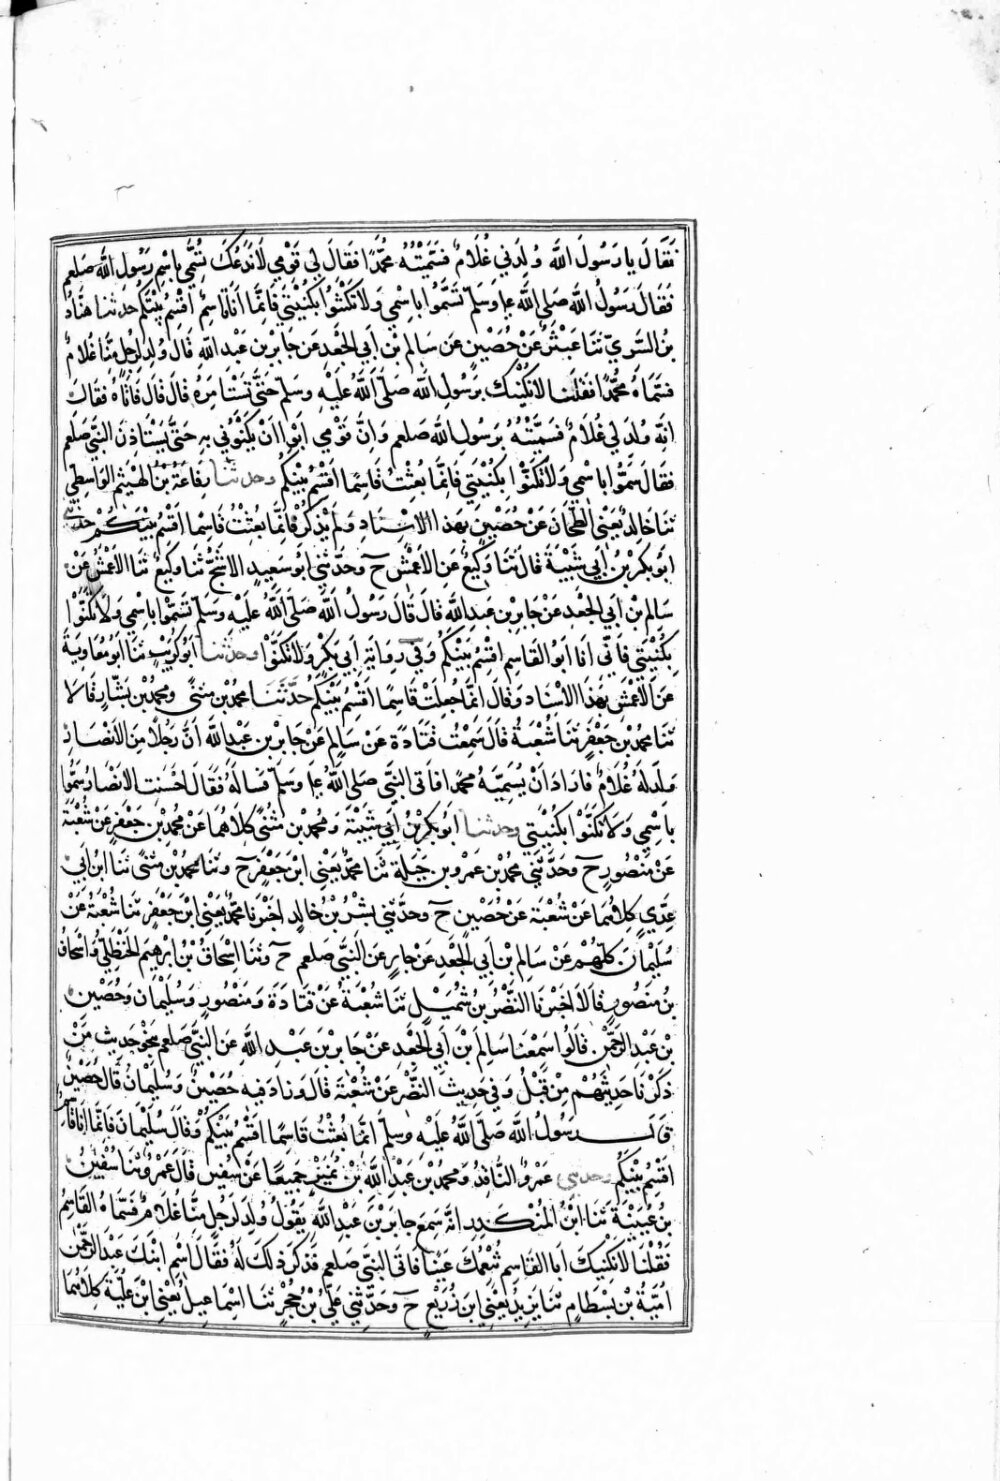 فَقَالَ يا رَسُولَ اللّه وُلِدَ لي غُلَامٌ فَسَمَّيْتُهُ مُحَمَّدًا فقَالَ لي قَوْمي لَا نَدَعُكَ تُسَمِّي باسْمِ رَسُولِ اللّه صلعم
فَقَالَ رَسُولُ اللّه صَلى اللّهُ عليه وَسَلم تَسَمَّوا باسْمِي وَلَا تَكْتَنُوا بكُنْيَتي فَاِنَّمَا اَنَا قَاسِمٌ اَقْسِمُ بَيْنَكُم حدثنا هنادُ
بنُ السَّرِيّ ثنَا عَبْثَرٌ عَنْ حُصَيْنٍ عَن سَالمِ بنِ اَبي الجَعْدِ عَن جَابرِ بن عَبْد اللّه قَال وُلِدَ لِرَجُلٍ مِنَّا غُلَامٌ
فَسَمَّاهُ مُحَمَّدًا فَقُلْنَا لَا نَكْنِيْكَ بِرَسُولِ اللّه صَلَّى اللّهُ عَلَيْهِ وسَلم حَتَّى تَسْتَأْمِرَهُ قَالَ فَاَتَاهُ فقَالَ
انّه وُلِدَ لي غُلَامٌ فَسَمَّيْتُهُ بِرَسُولِ اللّه صَلعم وَاِنَّ قَوْمي اَبَوْا اَنْ يَكْنُوْني بِهِ حَتَّى يَسْتَاذِنَ النَّبيَّ صَلعم
فقَالَ سَمُّوا باسْمِي وَلَا تَكَنَّوْا بكُنْيَتي فَاِنَّمَا بُعِثْتُ قَاسِمًا اَقْسِمُ بَيْنَكُم وحدثنا رِفَاعَةُ بْنُ الهَيْثَمِ الوَاسِطِي
ثَنَا خَالدٌ يَعْني الطَّحَّانَ عَنْ حُصَيْنٍ بِهَذا الاِسْنَادِ وَلَمْ يَذْكُرْ فَاِنَّمَا بُعِثْتُ قَاسِمًا اَقْسِمُ بَيْنَكُمْ حدثنا
ابُو بَكر بنُ اَبي شَيْبَةَ قَالَ ثَنَا وَكيْعٌ عَنِ الاَعْمَش ح وحَدَّثَني اَبُو سَعِيدٍ الاَشَجُّ ثَنَا وَكيعٌ ثَنَا الاَعْمَشُ عَنْ
سَالمِ بْن اَبي الجَعْدِ عَنْ جَابِر بْنِ عَبدِ اللّه قَالَ قَالَ رَسُولُ اللّه صَلَّى اللّهُ عَلَيْه وسَلم تَسَمَّوْا باسْمِي وَلَا تَكَنَّوْا
بِكُنْيَتي فَاِنّي اَنَا اَبُو القَاسِمِ اَقْسِمُ بَيْنَكُم وَفي رِوَايةِ اَبي بَكْرٍ وَلَا تَكْتَنُوْا وحدثنا اَبُو كُرَيْبٍ ثَنَا ابو مُعَاوِيَةَ
عَن الاَعْمَش بهَذا الاِسْنَادِ وقَال اِنَّمَا جُعِلْتُ قَاسِمًا اَقْسِمُ بَيْنَكُم حَدَّثَنَا محمدُ بْن مثنى ومحمدُ بْن بَشَّارٍ قَالَا
ثَنَا محمدُ بْن جَعْفَرٍ ثَنَا شُعْبَةُ قَالَ سَمِعْتُ قَتَادَةَ عَنْ سَالمٍ عَنْ جَابِر بْن عَبْد اللّه اَنَّ رَجُلًا مِنَ الاَنْصَارِ
وُلِدَ لَهُ غُلَامٌ فَارَادَ اَنْ يُسَمِّيَهُ مُحَمَّدًا فَاَتَى النَّبيَّ صَلى اللّهُ عليه وَسَلم فَسَالَهُ فَقَالَ اَحْسَنَتِ الاَنْصَارُ سَمُّوا
باسْمِي وَلَا تَكْتَنُوا بكُنْيَتي وحدثنا اَبُو بَكر بْنُ اَبي شَيْبَةَ وَمُحمد بْن مُثَنى كِلَاهُمَا عَنْ مُحمد بْن جَعْفَرٍ عَنْ شُعْبَةَ
عَنْ مَنْصُورٍ ح وحَدَّثَني محمدُ بْن عَمْرو بن جَبَلَةَ ثَنَا مُحَمَّدٌ يَعْني ابْنَ جَعْفَرٍ ح وثَنَا محمدُ بْن مثنى ثنا ابنُ اَبي
عَدِيٍّ كِلَاهُمَا عَنْ شُعْبَةَ عَنْ حُصَيْنٍ ح وَحَدَّثني بِشْرُ بْنُ خَالِدٍ اَخْبَرنَا مُحَمَّدٌ يَعْني ابْنَ جَعْفَرٍ ثَنَا شُعْبَةُ عَنْ
سُلَيْمَانَ كُلُّهُمْ عَنْ سَالمِ بْن اَبي الجَعْدِ عَنْ جَابِرٍ عَنِ النَّبيّ صَلعم ح وثَنَا اِسْحَاقُ بْنُ اِبْرهيمَ الحَنْظَلِيُّ وَاِسْحَاقُ
بْنُ مَنْصُورٍ قَالَا اَخْبَرنَا النَّضْرُ بنُ شُمَيْلٍ ثَنَا شُعْبَةُ عَنْ قَتَادَةَ وَمَنْصُورٍ وَسُلَيْمَانَ وَحُصَيْنِ
بْنِ عَبْدِ الرَّحْمٰنِ قَالُوا سَمِعْنَا سَالِمَ بْنَ اَبي الجَعْدِ عَنْ جَابِر بْن عَبْدِ اللّهِ عَنِ النَّبيّ صَلعم بنَحْوِ حَدِيثِ مَنْ
ذَكَرْنَا حَدِيْثَهُمْ مِنْ قَبْلُ وَفي حَدِيثِ النَّضْرِ عَنْ شُعْبَةَ قَالَ وَزَادَ فيه حُصَيْنٌ وَسُلَيْمَانُ قَالَ حُصَيْنٌ
قَالَ رَسُولُ اللّه صَلَّى اللّهُ عَلَيْهِ وسلم اِنَّمَا بُعِثْتُ قَاسِمًا اَقْسِمُ بَيْنَكُمْ وَقَالَ سُلَيْمَانُ فَاِنَّمَا اَنَا قَاسِمٌ
اَقْسِمُ بَيْنَكُمْ وحدثني عَمْرٌو النَّاقِدُ وَمحمدُ بْن عَبْدِ اللّهِ بْنِ نُمَيْرٍ جَمِيعًا عَنْ سُفْيٰنَ قَالَ عَمْرٌو ثَنَا سُفْيٰنُ
بْنُ عُيَيْنَةَ ثَنَا ابْنُ المُنْكَدِرِ اَنّه سَمِعَ جَابِرَ بْنَ عَبْدِ اللّه يَقُولُ وُلِدَ لِرَجُلٍ مِنَّا غُلَامٌ فَسَمَّاهُ القَاسِمَ
فَقُلْنَا لَا نَكْنِيْكَ اَبَا القَاسِمِ وَلَا نُنْعِمُكَ عَيْنًا فَاَتَى النَّبيَّ صَلعم فَذَكَرَ ذٰلِكَ لَهُ فَقَالَ اَسْمِ ابْنَكَ عَبْدَ الرَّحْمٰن
اُمَيَّةُ بْن بِسْطَامٍ ثَنَا يَزِيدُ يَعْني ابنَ زُرَيْعٍ ح وَحَدَّثَني عَليُّ بْنُ حُجْرٍ ثَنَا اِسْمَاعيلُ يَعْني ابْنَ عُلَيَّةَ كِلَاهُمَا